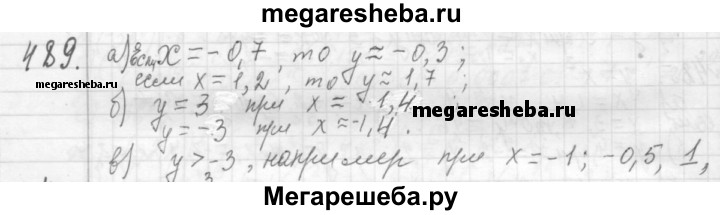 megaresheba.ru
489. а) если x = -0,7, то y ≈ -0,3;
если x = 1,2, то y ≈ 1,7;
megaresheba.ru
б) y = 3 при x ≈ 1,4;
megaresheba.ru
y = -3 при x ≈ -1,4.
в) y > -3, например при x = -1; -0,5, 1,
3
Мегарешеба.ру